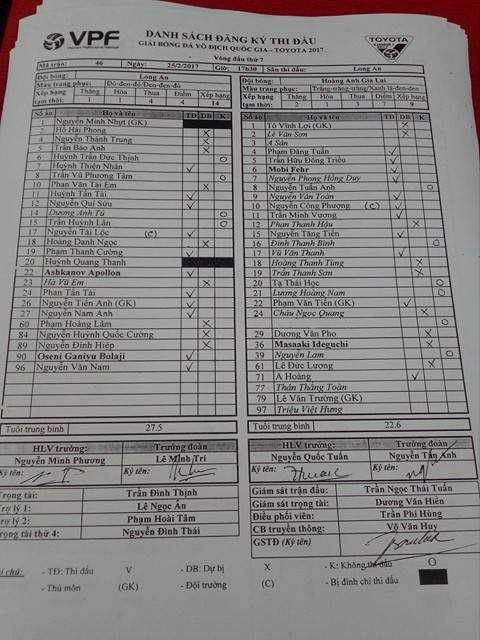 VPF
DANH SÁCH ĐĂNG KÝ THI ĐẤU
GIẢI BÓNG ĐÁ VÔ ĐỊCH QUỐC GIA - TOYOTA 2017
TOYOTA
Vòng đấu thứ 7
Mã trận: 46 Ngày: 25/2/2017 Giờ: 17h30 Sân thi đấu: Long An
Đội bóng: Long An
Màu trang phục: Đỏ-đen-đỏ/Đen-đen-đỏ
Xếp hạng tạm thời: Thắng 1 Hòa 1 Thua 4 Điểm 4 Xếp hạng 14
Số áo Họ và tên TĐ DB K
1 Nguyễn Minh Nhựt (GK)
3 Hồ Hải Phong X
4 Nguyễn Thành Trung X
5 Trần Bảo Anh X
6 Huỳnh Trần Đức Thịnh O
7 Huỳnh Thiện Nhân V
8 Trần Vũ Phương Tâm O
10 Phan Văn Tài Em X
11 Huỳnh Tấn Tài V
12 Nguyễn Quí Sửu V
14 Dương Anh Tú O
15 Trần Huỳnh Lân O
17 Nguyễn Tài Lộc (C) V
18 Hoàng Danh Ngọc X
19 Phạm Thanh Cường V
20 Huỳnh Quang Thanh
22 Ashkanov Apollon V
23 Hà Vũ Em X
24 Phan Tấn Tài V
26 Nguyễn Tiến Anh (GK) V
27 Nguyễn Nam Anh V
60 Phạm Hoàng Lâm X
84 Nguyễn Huỳnh Quốc Cường X
89 Nguyễn Đình Hiệp X
90 Oseni Ganiyu Bolaji V
96 Nguyễn Văn Nam V
Tuổi trung bình 27.5
HLV trưởng: Trưởng đoàn
Nguyễn Minh Phương Lê Minh Trí
Ký tên: Ký tên:
Đội bóng: Hoàng Anh Gia Lai
Màu trang phục: Trắng-trắng-trắng/Xanh lá-đen-đen
Xếp hạng tạm thời: Thắng Hòa Thua Điểm Xếp hạng
Số áo Họ và tên TĐ DB K
1 Tô Vĩnh Lợi (GK) X
2 Lê Văn Sơn X
3 A Sân
4 Phạm Đăng Tuấn V
5 Trần Hữu Đông Triều V
6 Mobi Fehr V
7 Nguyễn Phong Hồng Duy V
8 Nguyễn Tuấn Anh O
9 Nguyễn Văn Toàn V
10 Nguyễn Công Phượng (C) V
11 Trần Minh Vương V
12 Phan Thanh Hậu X
15 Nguyễn Tăng Tiến V
16 Đinh Thanh Bình O
17 Vũ Văn Thanh V
18 Hoàng Thanh Tùng X
19 Trần Thanh Sơn X
20 Tạ Thái Học O
21 Lương Hoàng Nam O
22 Phạm Văn Tiến (GK) V
24 Châu Ngọc Quang O
29 Dương Văn Pho X
36 Masaaki Ideguchi X
39 Nguyễn Lam O
61 Lê Đức Lương X
71 A Hoàng V
77 Thân Thắng Toàn
79 Lê Văn Trường (GK)
97 Triệu Việt Hưng
Tuổi trung bình 22.6
HLV trưởng: Trưởng đoàn
Nguyễn Quốc Tuấn Nguyễn Tấn Anh
Ký tên: Ký tên:
Trọng tài: Trần Đình Thịnh
Trợ lý 1: Lê Ngọc Ân
Trợ lý 2: Phạm Hoài Tâm
Trọng tài thứ 4: Nguyễn Đình Thái
Giám sát trận đấu: Trần Ngọc Thái Tuấn
Giám sát trọng tài: Dương Văn Hiền
Điều phối viên: Trần Phi Hùng
CB truyền thông: Võ Văn Huy
GSTĐ (Ký tên)
chú: - TĐ: Thi đấu V - DB: Dự bị X - K: Không thi đấu O
- Thủ môn (GK) - Đội trưởng (C) - Bị đình chỉ thi đấu